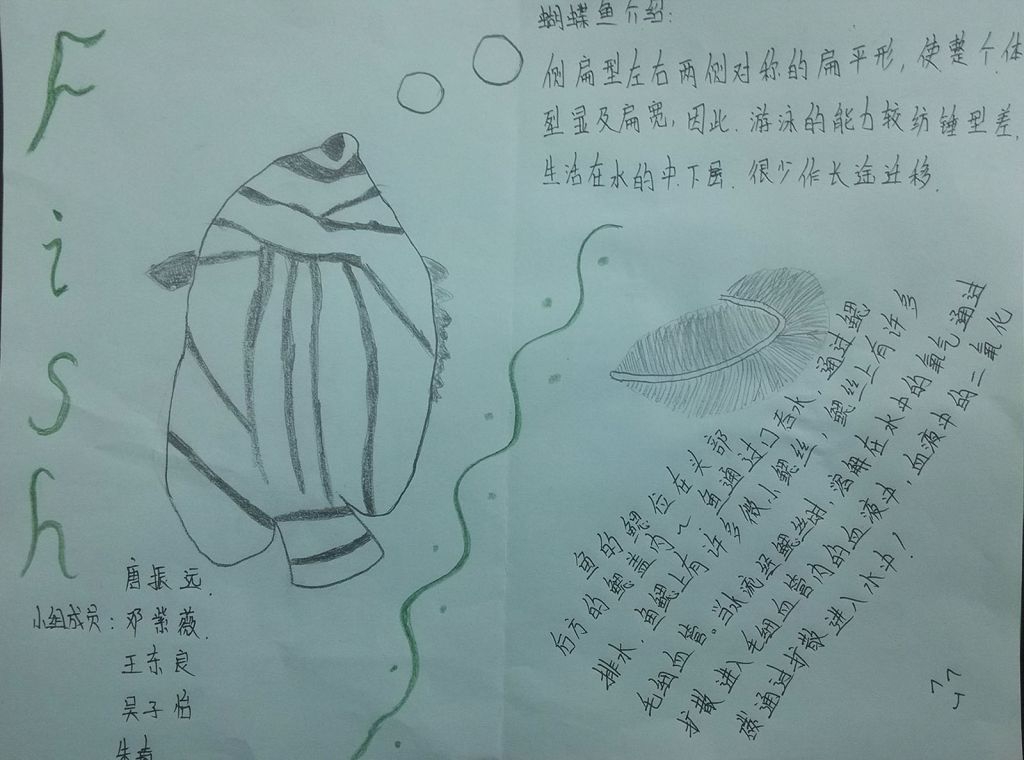 Fish
蝴蝶鱼介绍:
侧扁型左右两侧对称的扁平形,使整个体
型显及扁宽,因此.游泳的能力较纺锤型差,
生活在水的中.下层.很少作长途迁移.
鱼的鳃位在头部
后方的鳃盖内~鱼通过口吞水,通过鳃
排水,鱼鳃上有许多微小鳃丝,鳃丝上有许多
毛细血管。当水流经鳃丝时,溶解在水中的氧气通过
扩散进入毛细血管内的血液中,血液中的二氧化
碳通过扩散进入水中!
唐振远.
小组成员:邓紫薇.
王东良
吴子怡